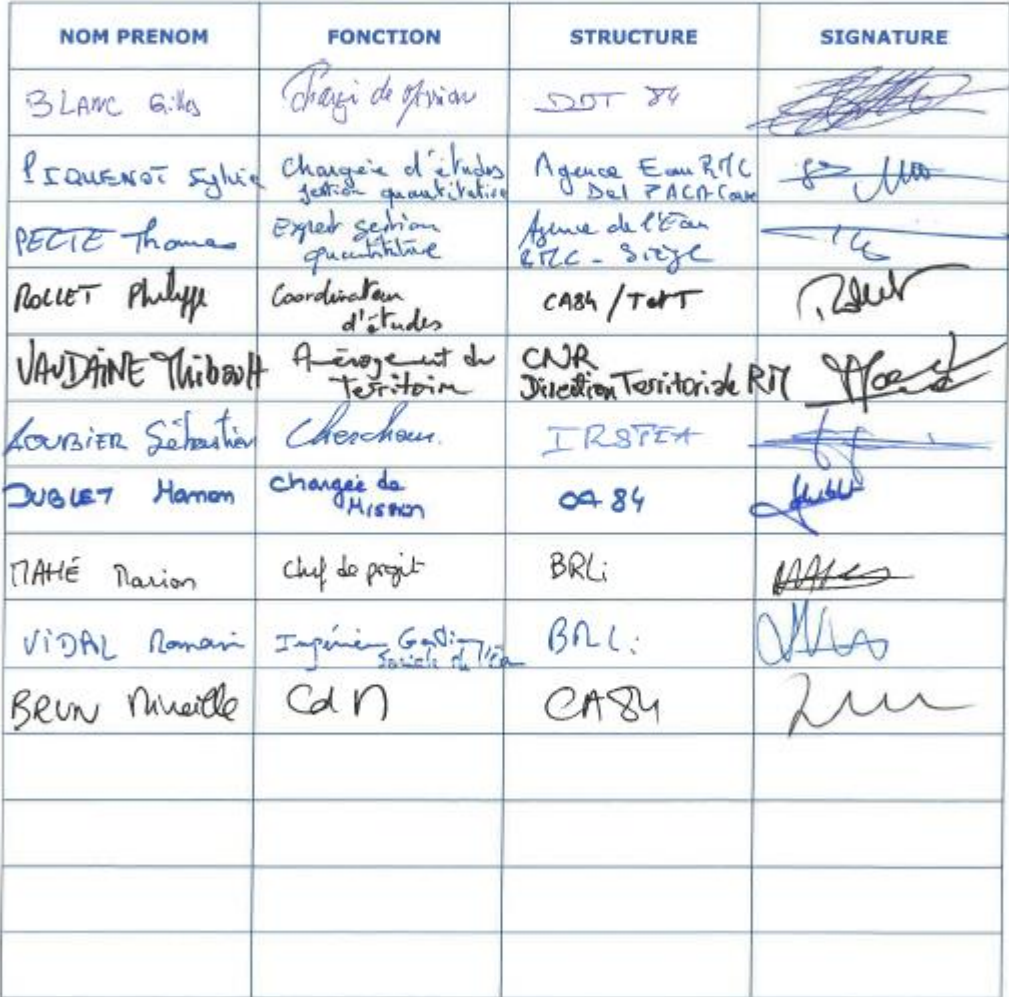 NOM PRENOM FONCTION STRUCTURE SIGNATURE
BLANC Gilles Chargé de mission DDT 84
PIQUENOT Sylvie Chargée d'études Agence Eau RMC
gestion quantitative Del PACA Corse
PECTE Thomas Expert gestion Agence de l'Eau
quantitative RMC - Siège
ROLLET Philippe Coordinateur CA84 / TetT
d'études
VAUDAINE Thibault Aménagement du CNR
Territoire Direction Territoriale RM
LOUBIER Sébastien Chercheur. IRSTEA
DUBLET Manon Chargée de CA 84
Mission
MAHÉ Marion Chef de projet BRLi
VIDAL Romain Ingénieur Gestion BRLi
Sociale de l'Eau
BRUN Mireille CdM CA84